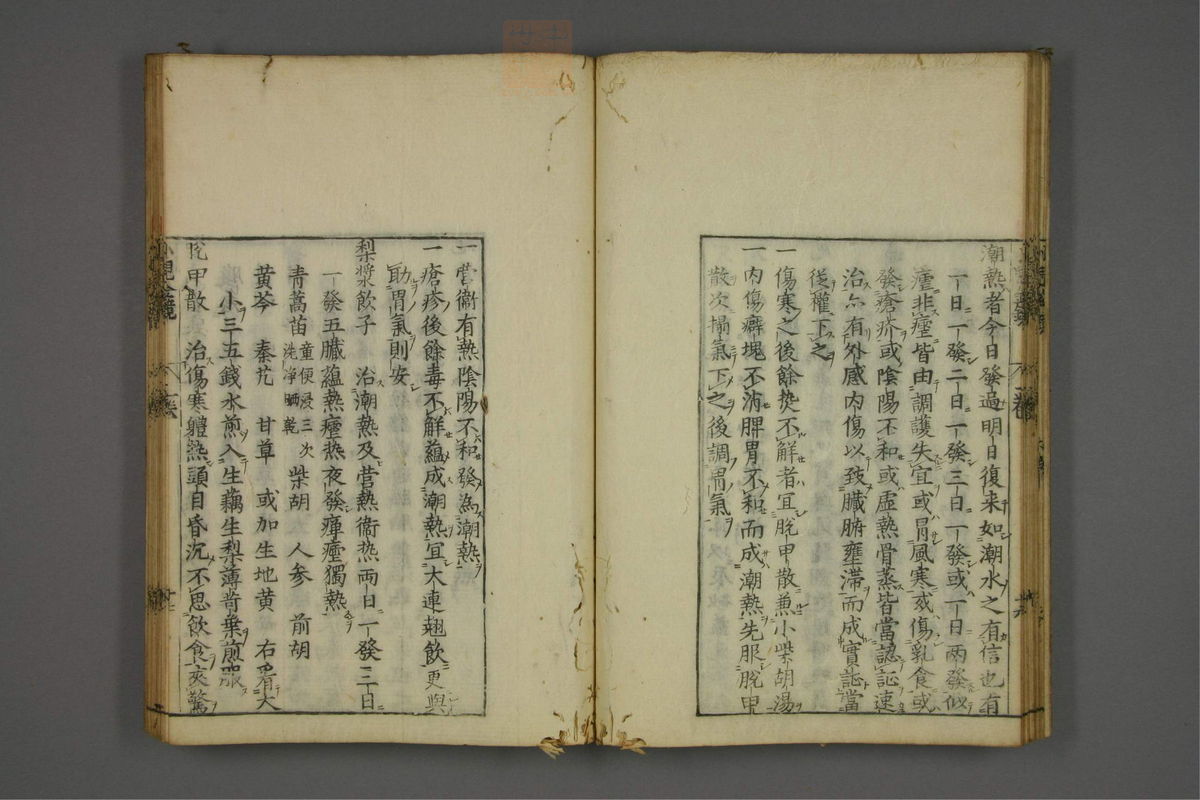 潮熱者今日發過明日復来如潮水之有信也有
一日一發二日一發三日一發或一日兩發似
瘧非瘧皆由調護失宜或冐風寒或傷乳食或
發瘡疥或陰陽不和或虛熱骨蒸皆當認証速
治亦有外感内傷以致臓腑壅滞而成實証當
從權下之
一傷寒之後餘热不解者宜脫甲散兼小柴胡湯
一内傷癖塊不消脾胃不和而成潮熱先服脫甲
散次搨氣下之後調胃氣
一营衞有熱陰陽不和發為潮熱
一瘡疹後餘毒不解蘊成潮熱宜大連翹飲更與
助胃氣則安
梨漿飲子 治潮熱及营熱衞热兩日一發三日
一發五臓蘊熱瘧热夜發癉瘧獨熱
青蒿苗 童便浸三次 洗净晒乾 柴胡 人參 前胡
黄芩 秦艽 甘草 或加生地黄 右看大
小三五錢水煎入生藕生梨薄荷棗煎服
脫甲散 治傷寒軆熱頭目昏沉不思飲食夾驚